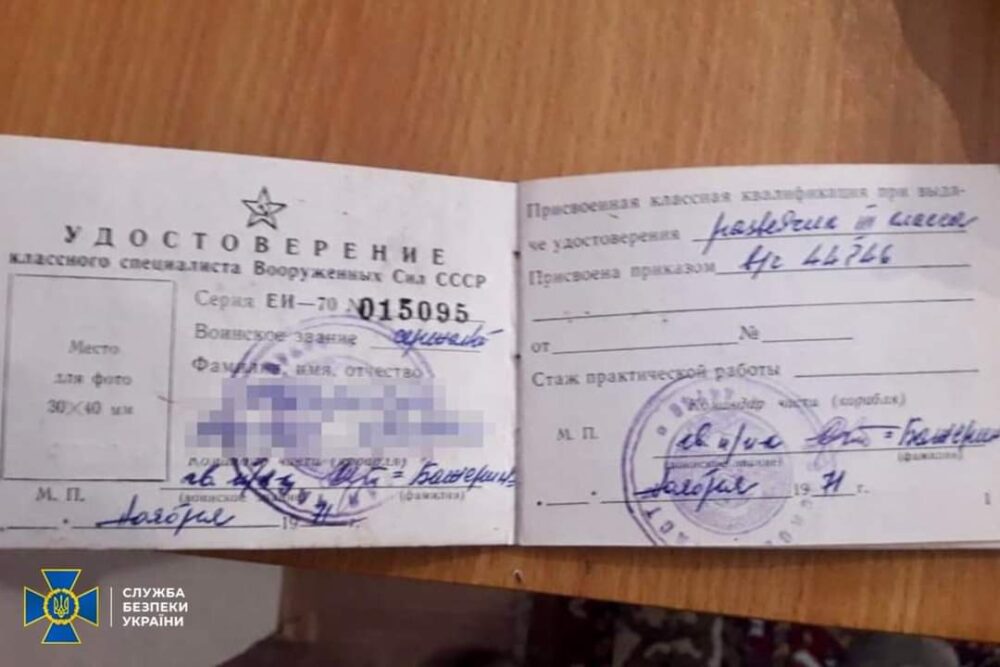 УДОСТОВЕРЕНИЕ
классного специалиста Вооруженных Сил СССР
Серия ЕИ—70 № 015095
Воинское звание
Фамилия, имя, отчество
Место
для фото
30×40 мм
Командир части (корабля)
гв. п/п-к
(воинское звание) (фамилия)
М. П.
ноября 1971 г.
Присвоенная классная квалификация при выда-
че удостоверения разведчик III класса
Присвоена приказом в/ч 44746
от № 
Стаж практической работы
Командир части (корабля)
М. П. гв. п/п-к
(воинское звание) (фамилия)
ноября 1971 г.
1
СЛУЖБА
БЕЗПЕКИ
УКРАЇНИ